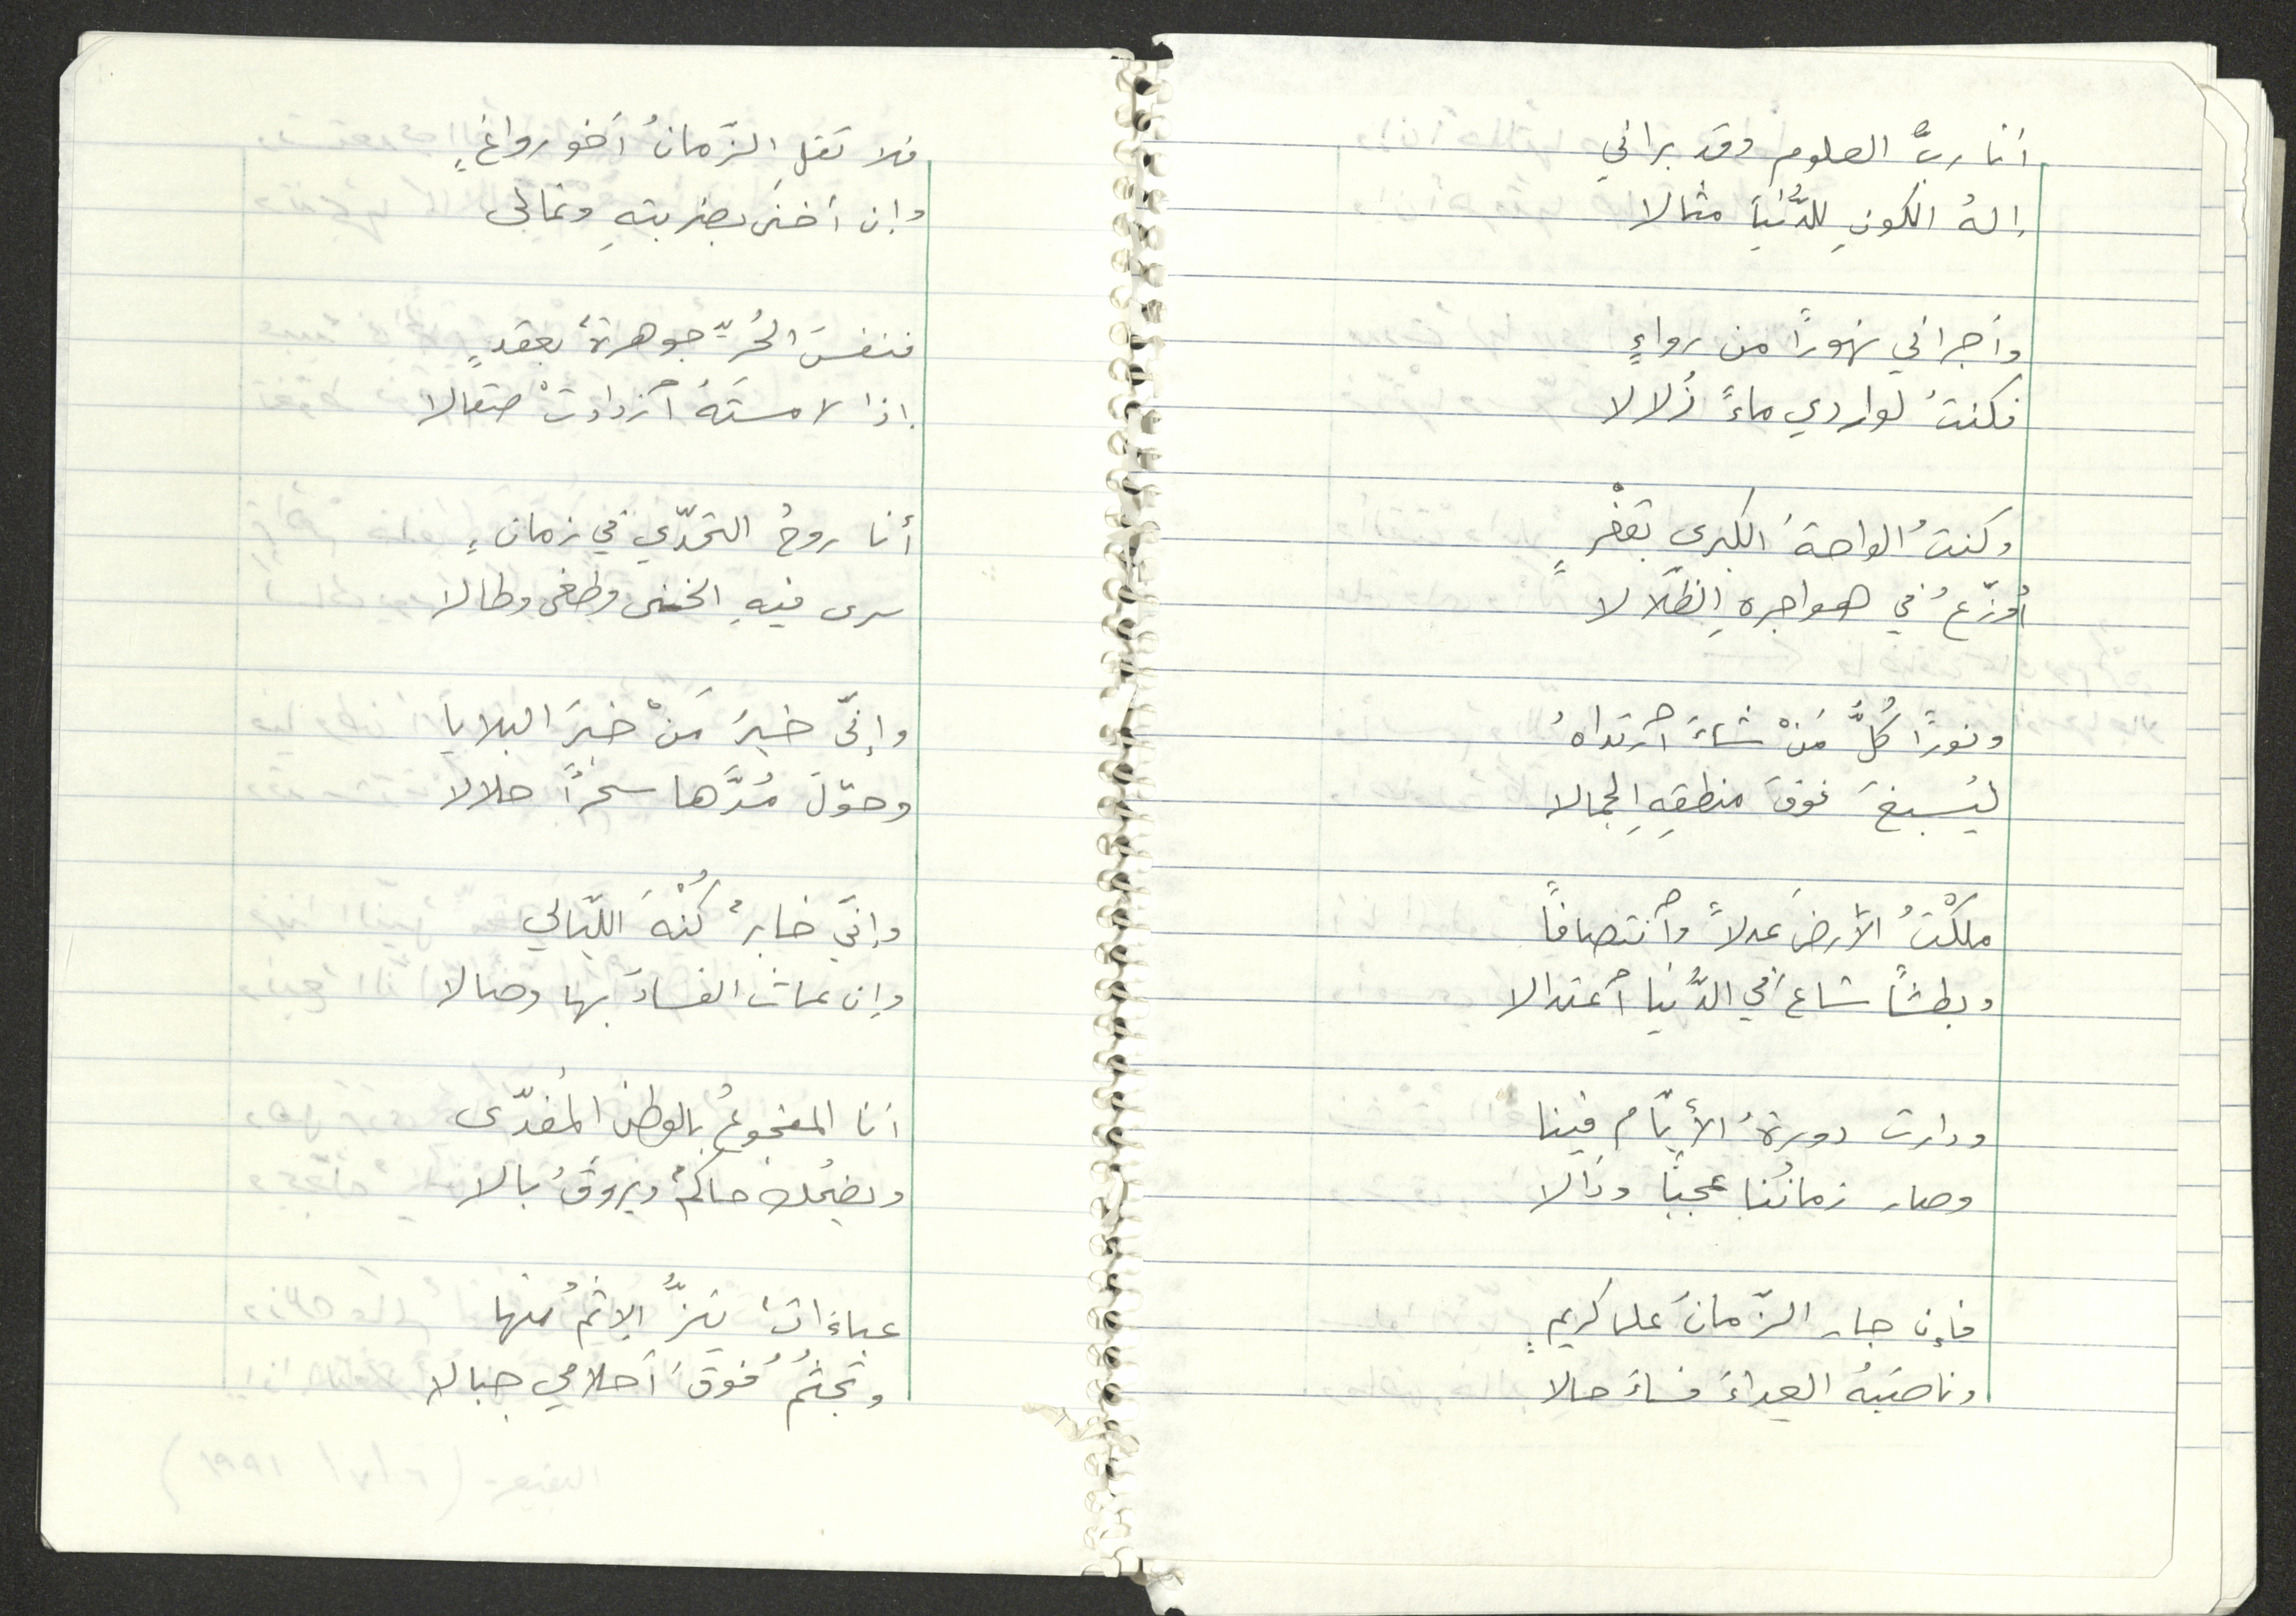 أنا ربُّ العلوم وقد براني
إلهُ الكونِ للدُّنيا مثالا
وأجراني نهورًا من رواءٍ
فكنتُ لواردي ماءً زُلالا
وكنتُ الواحةَ الكبرى بقفْرٍ
أُوزّعُ في هواجرهِ الظّلالا
ونورًا كُلُّ مَنْ شاءَ آرتداهُ
ليُسبغَ فوقَ منطقِهِ الجمالا
ملكْتُ الأرضَ عدلاً وآنتصافاً
وبطشاً شاعَ في الدُّنيا آعتدالا
ودارت دورةُ الأيّام فينا
وصار زمانُنا عجبًا وزالا
فإن جار الزّمانُ على كريمٍ
وناصبَهُ العِداءَ فساءَ حالا
فلا تقلِ الزّمانُ أخو رواغٍ
وإن أخنى بضربتهِ وغالى
فنفسُ الحُرِّ جوهرةٌ بعقدٍ
إذا لامستَهُ آزدادتْ صقالا
أنا روحُ التحدّي في زمانٍ
سرى فيهِ الخنى وطغى وطالا
وإنّي خيرُ مَنْ خبرَ البلايا
وحوّلَ مُرَّها سحراً حلالا
وإنّي خابرٌ كُنْهَ اللّيالي
وإن عاث الفسادُ بها وصالا
أنا المفجوعُ بالوطنِ المُفدّى
ويضحك حاكمٌ ويروقُ بالا
عباءاتٌ ينزُّ الإثمُ منها
وتجثُمُ فوقَ أحلامي جبالا